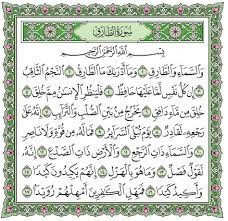 سُورَةُ الطَّارِقِ
بِسْمِ اللَّهِ الرَّحْمَٰنِ الرَّحِيمِ
وَالسَّمَاءِ وَالطَّارِقِ ١ وَمَا أَدْرَاكَ مَا الطَّارِقُ ٢ النَّجْمُ الثَّاقِبُ
٣ إِنْ كُلُّ نَفْسٍ لَمَّا عَلَيْهَا حَافِظٌ ٤ فَلْيَنْظُرِ الْإِنْسَانُ مِمَّ خُلِقَ
٥ خُلِقَ مِنْ مَاءٍ دَافِقٍ ٦ يَخْرُجُ مِنْ بَيْنِ الصُّلْبِ وَالتَّرَائِبِ ٧ إِنَّهُ عَلَىٰ
رَجْعِهِ لَقَادِرٌ ٨ يَوْمَ تُبْلَى السَّرَائِرُ ٩ فَمَا لَهُ مِنْ قُوَّةٍ وَلَا نَاصِرٍ
١٠ وَالسَّمَاءِ ذَاتِ الرَّجْعِ ١١ وَالْأَرْضِ ذَاتِ الصَّدْعِ ١٢ إِنَّهُ
لَقَوْلٌ فَصْلٌ ١٣ وَمَا هُوَ بِالْهَزْلِ ١٤ إِنَّهُمْ يَكِيدُونَ كَيْدًا
١٥ وَأَكِيدُ كَيْدًا ١٦ فَمَهِّلِ الْكَافِرِينَ أَمْهِلْهُمْ رُوَيْدًا ١٧